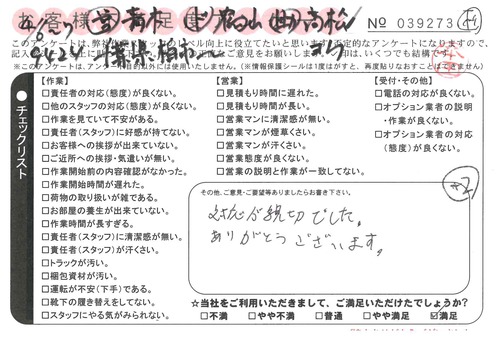 お客様
No 039273
このアンケートは、弊社
記入
※このアンケートは、アンケート目的以外には使用いたしません。(※情報保護シールは1度はがすと、再度貼りなおすことはできません)
チェックリスト
【作業】
□責任者の対応(態度)が良くない。
□他のスタッフの対応(態度)が良くない。
□作業を見ていて不安がある。
□責任者(スタッフ)に好感が持てない。
□お客様への挨拶が出来ていない。
□ご近所への挨拶・気遣いが無い。
□作業開始前の内容確認がなかった。
□作業開始時間が遅れた。
□荷物の取り扱いが雑である。
□お部屋の養生が出来ていない。
□作業時間が長すぎる。
□責任者(スタッフ)に清潔感が無い。
□責任者(スタッフ)が汗くさい。
□トラックが汚い。
□梱包資材が汚い。
□運転が不安(下手)である。
□靴下の履き替えをしてない。
□スタッフにやる気がみられない。
【営業】
□見積もり時間に遅れた。
□見積もり時間が長い。
□営業マンに清潔感が無い。
□営業マンが煙草くさい。
□営業マンが汗くさい。
□営業態度が良くない。
□営業の説明と作業が一致してない。
【受付・その他】
□電話の対応が良くない。
□オプション業者の説明
・作業が良くない。
□オプション業者の対応
(態度)が良くない。
その他、ご意見・ご要望等ありましたらお書き下さい。
対応が親切でした。
ありがとうございます。
☆当社をご利用いただきまして、ご満足いただけたでしょうか?
□不満 □やや不満 □普通 □やや満足 ☑満足